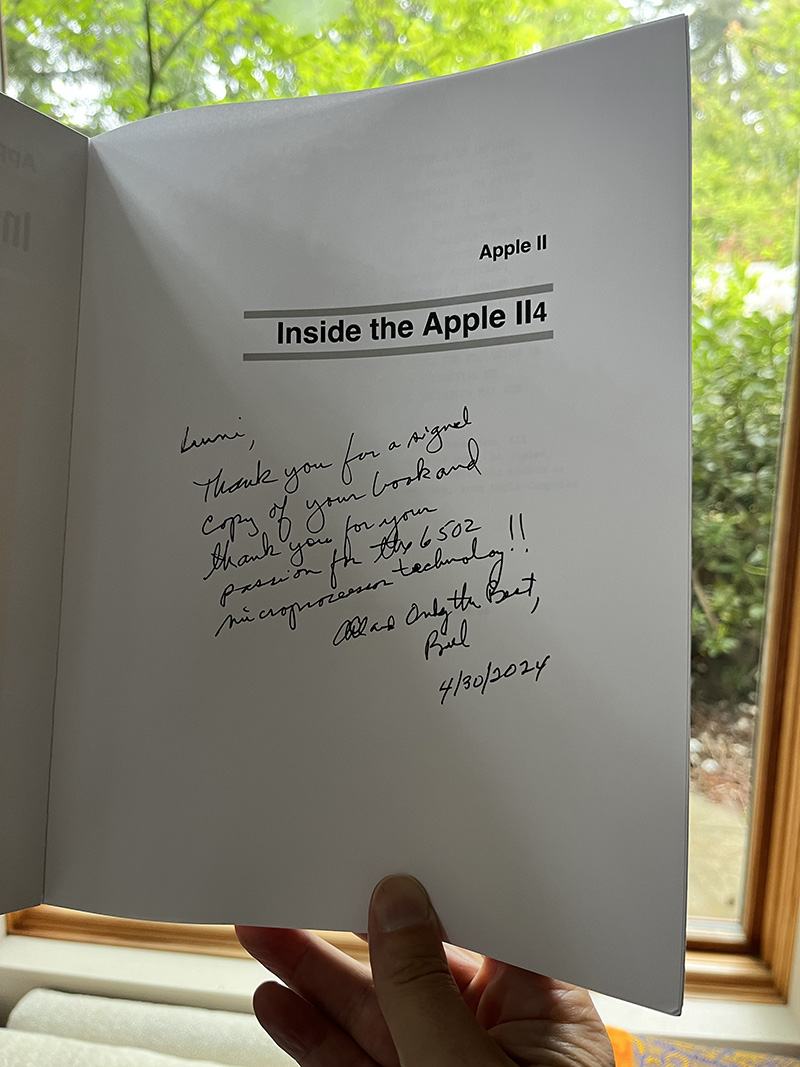 Apple II
Inside the Apple II4
Thank you for a signed
copy of your book and
thank you for your
passion for the 6502
microprocessor technology!!
All and Only the Best,
Bill
4/30/2024